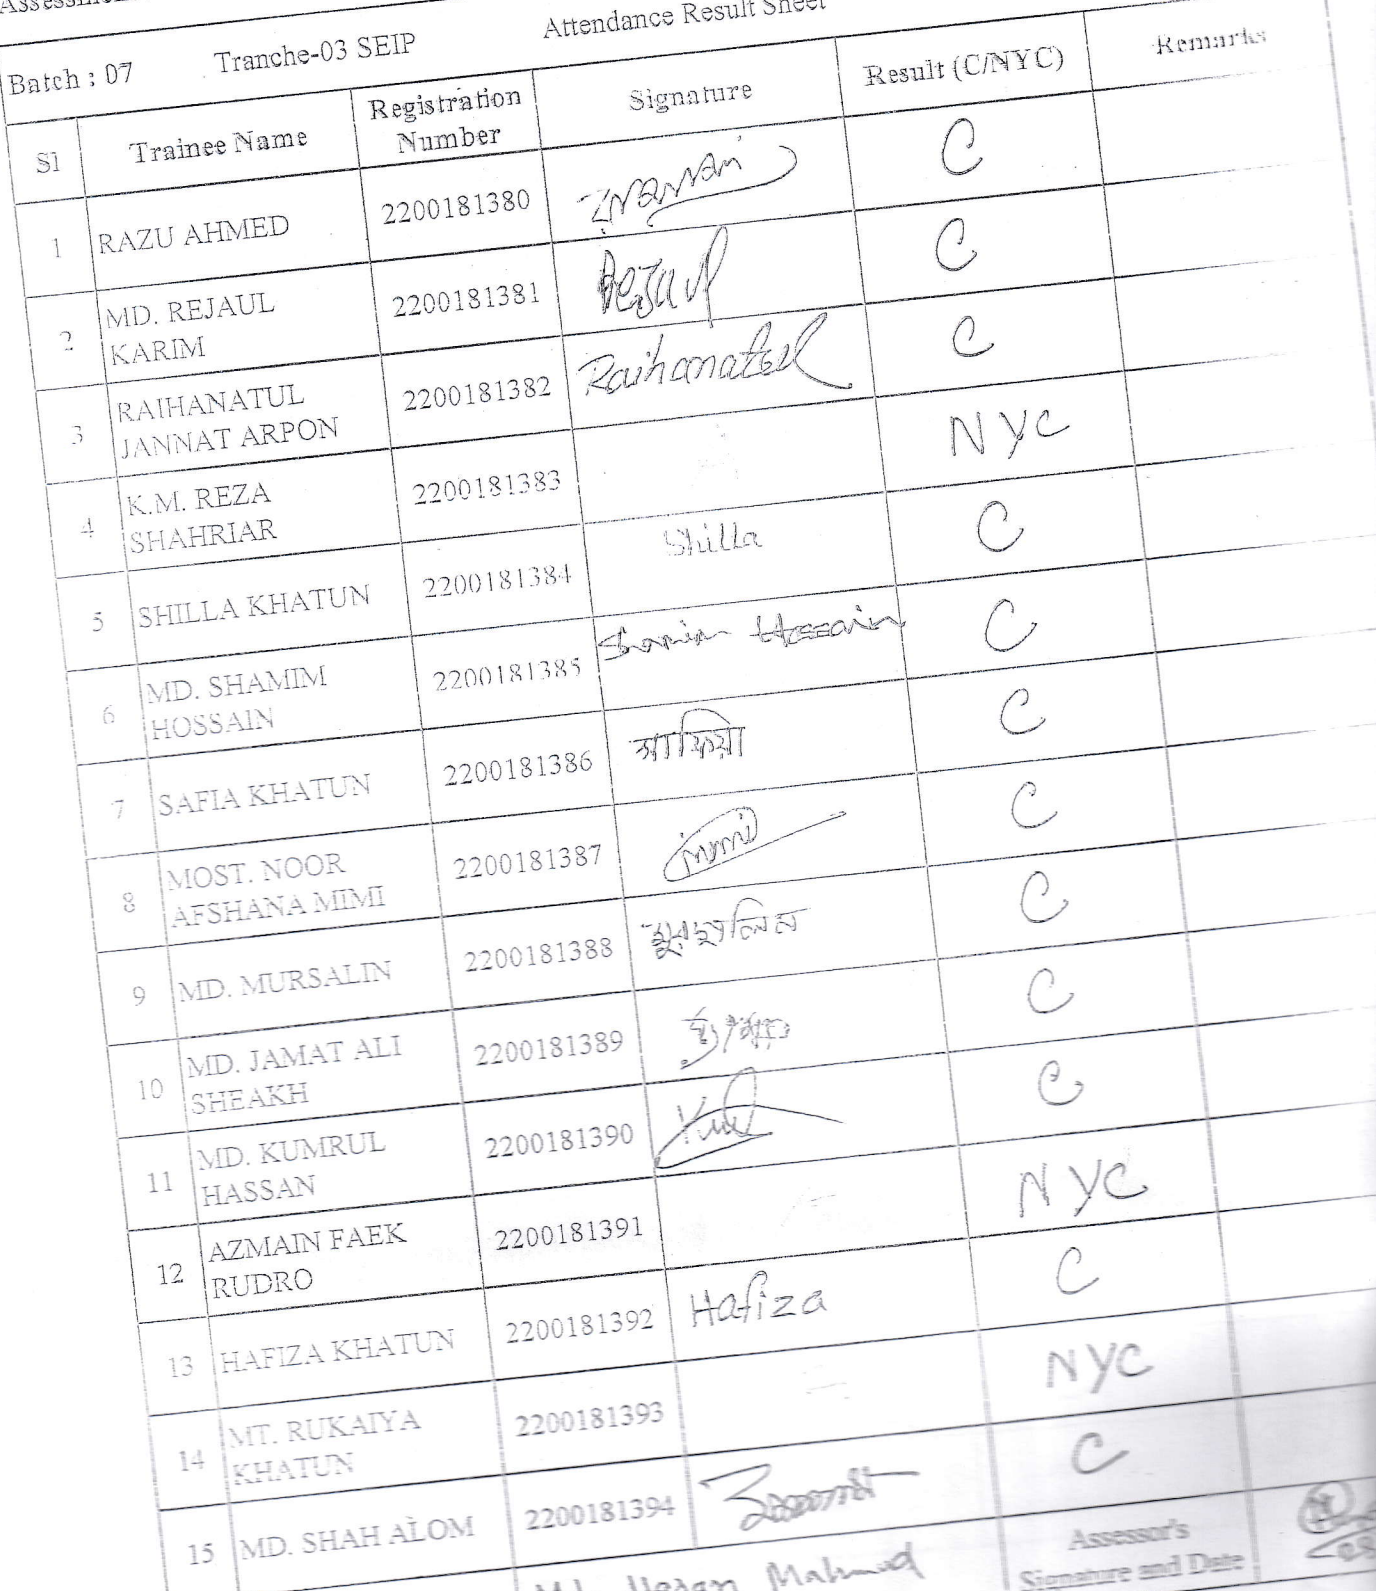 Attendance Result Sheet
Batch : 07 Tranche-03 SEIP
Sl Trainee Name Registration Number Signature Result (C/NYC) Remarks
1 RAZU AHMED 2200181380 C
2 MD. REJAUL KARIM 2200181381 Rejaul C
3 RAIHANATUL JANNAT ARPON 2200181382 Raihanatul C
4 K.M. REZA SHAHRIAR 2200181383 NYC
5 SHILLA KHATUN 2200181384 Shilla C
6 MD. SHAMIM HOSSAIN 2200181385 Shamim Hossain C
7 SAFIA KHATUN 2200181386 সাফিয়া C
8 MOST. NOOR AFSHANA MIMI 2200181387 mimi C
9 MD. MURSALIN 2200181388 C
10 MD. JAMAT ALI SHEAKH 2200181389 C
11 MD. KUMRUL HASSAN 2200181390 C
12 AZMAIN FAEK RUDRO 2200181391 NYC
13 HAFIZA KHATUN 2200181392 Hafiza C
14 MT. RUKAIYA KHATUN 2200181393 NYC
15 MD. SHAH ALOM 2200181394 C
Mahmud Assessor's
Signature and Date